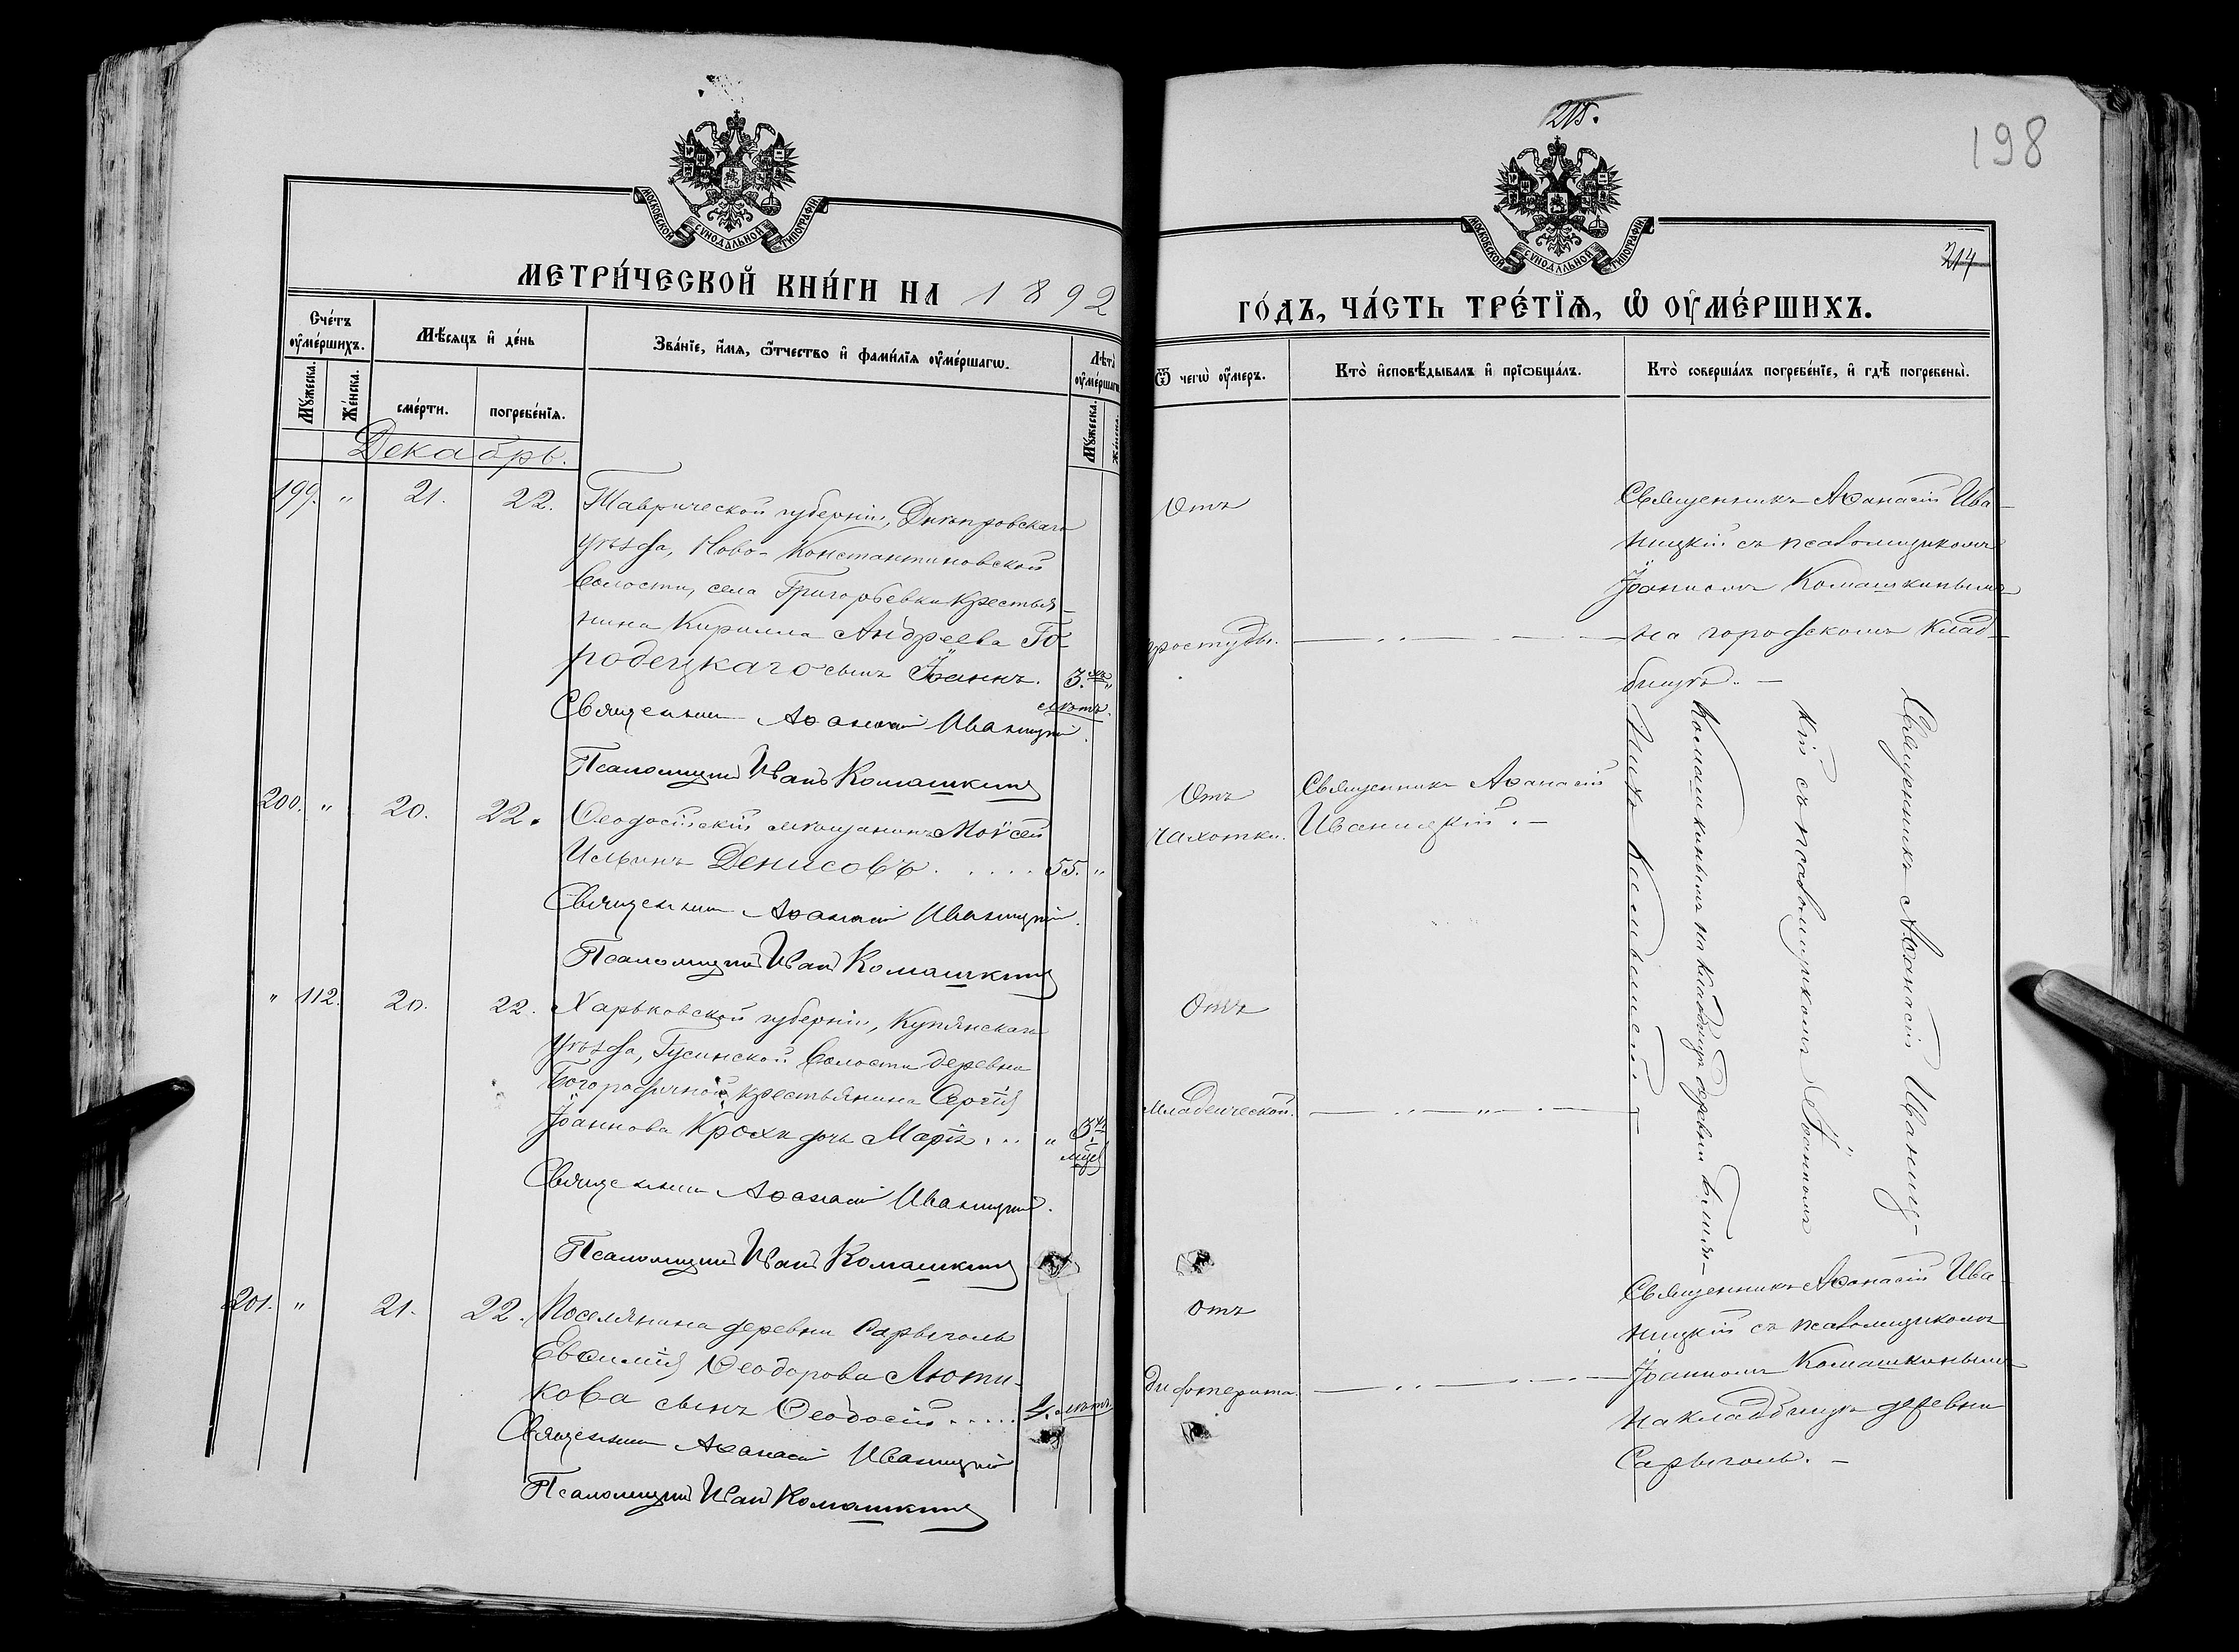 МОСКОВСКОЙ СУНОДАЛЬНОЙ ТИПОГРАФІИ.
МЕТРИ́ЧЕСКОЙ КНИ́ГИ НА 1892
Сче́тъ ᲂу҆ме́ршихъ.
Мꙋ́жеска.
Же́нска.
Мѣ́сяцъ и҆ де́нь
сме́рти.
погребе́нїѧ.
Зва́нїе, и҆́мѧ, ѻ҆́тчество и҆ фами́лїѧ ᲂу҆ме́ршагѡ.
Лѣ́та ᲂу҆ме́ршагѡ
Мꙋ́жеска.
Же́нска.
Декабрь.
199. " 21. 22. Таврической губерніи, Днѣпровскаго
уѣзда, Ново-Константиновской
волости, села Григорьевки крестья-
нина Кирилла Андреева Го-
родецкаго сынъ Іоаннъ. 3. "
лѣтъ.
Священникъ Аѳанасій Иваницкій.
Псаломщикъ Иванъ Комашкинъ
200. " 20. 22. Ѳеодосійскій мѣщанинъ Моѵсей
Ильинъ Денисовъ . . . . . 55. "
Священникъ Аѳанасій Иваницкій.
Псаломщикъ Иванъ Комашкинъ
" 112. 20. 22. Харьковской губерніи, Купянскаго
уѣзда, Гусинской волости деревни
Богородичной крестьянина Сергія
Іоаннова Кроха дочь Марія . . . "
мѣс
Священникъ Аѳанасій Иваницкій.
Псаломщикъ Иванъ Комашкинъ
201. " 21. 22. Поселянина деревни Сарыголь
Евѳимія Ѳеодорова Люти-
кова сынъ Ѳеодосій . . . . . 4. лѣтъ
Священникъ Аѳанасій Иваницкій
Псаломщикъ Иванъ Комашкинъ
215.
198
МОСКОВСКОЙ СУНОДАЛЬНОЙ ТИПОГРАФІИ.
214
ГО́ДЪ, ЧА́СТЬ ТРЕ́ТЇѦ, Ѡ҆ ОУ҆МЕ́РШИХЪ.
Ѿ чегѡ̀ ᲂу҆́меръ.
Кто̀ и҆сповѣ́дывалъ и҆ прїѡбща́лъ.
Кто̀ соверша́лъ погребе́нїе, и҆ гдѣ̀ погребены̀.
Отъ
простуды.
Священникъ Аѳанасій Ива-
ницкій съ псаломщикомъ
Іоанномъ Комашкинымъ
на городскомъ клад-
бищѣ. –
Отъ
чахотки.
Священникъ Аѳанасій
Иваницкій. –
Священникъ Аѳанасій Иваниц-
кій съ псаломщикомъ Іоанномъ
Комашкинымъ на кладбищѣ деревни
Отъ
Младенческой.
Отъ
дифтерита.
Священникъ Аѳанасій Ива-
ницкій съ псаломщикомъ
Іоанномъ Комашкинымъ
на кладбищѣ деревни
Сарыголь. –